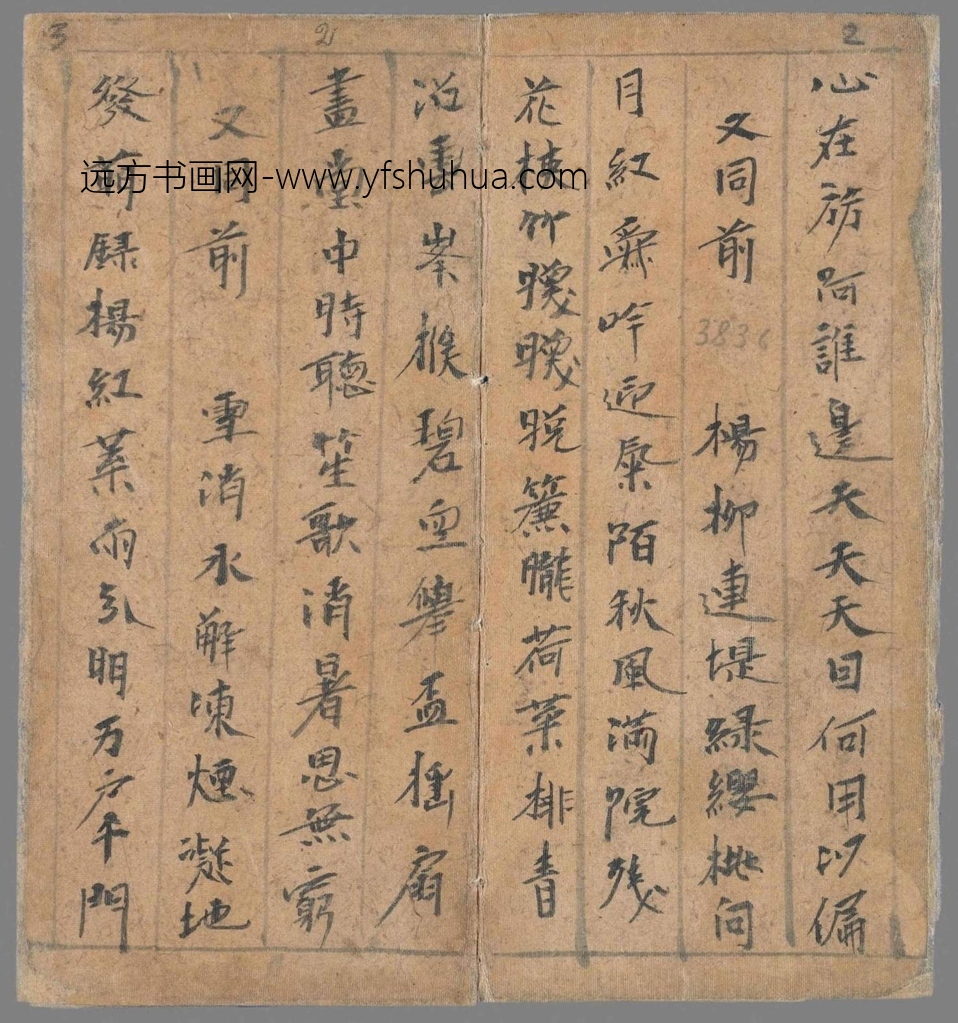 心在阿誰邊天天天曰何用以偏
又同前 楊柳連堤綠纓桃向
月紅舜吟迎氣陌秋風滿院殘
花枝竹晚簾朧荷葉排青
沼 峯猴碧 舉盃摇扇
畫堂中時聽笙歌消暑思無窮
又同前 雪消水解凍煙凝地
發前緑楊紅葉雨引明万户千門
3 2 2
3836
远方书画网-www.yfshuhua.com